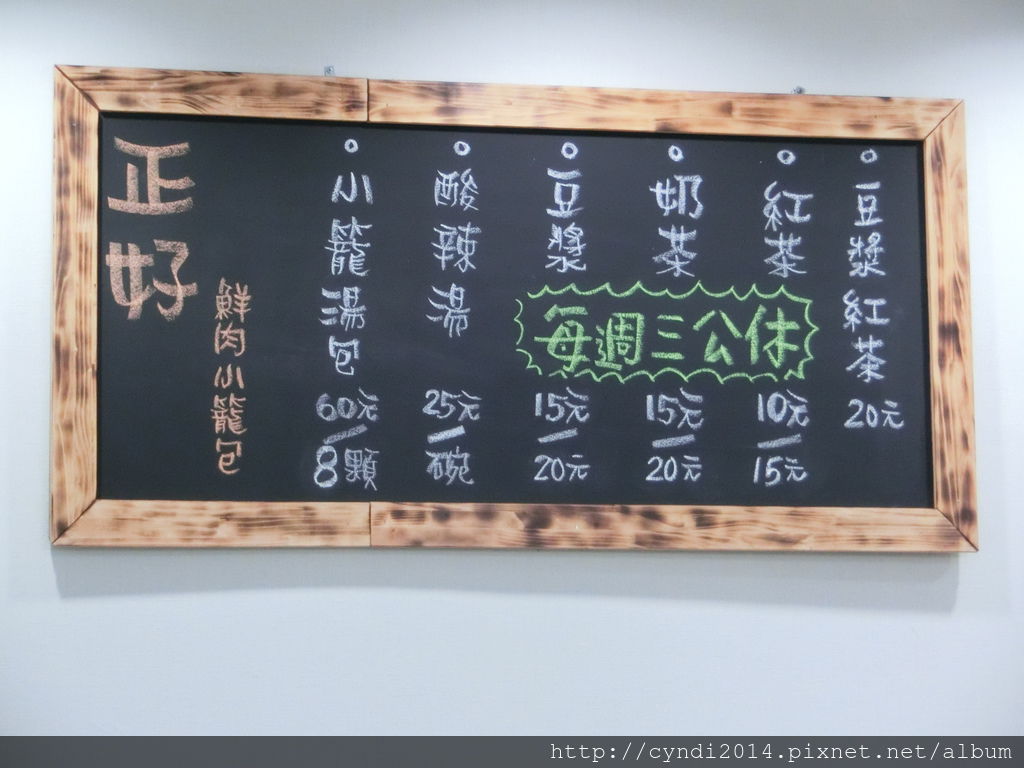 正好
鮮肉小籠包
小籠湯包 60元/8顆
酸辣湯 25元/碗
豆漿 15元/20元
奶茶 15元/20元
紅茶 10元/15元
豆漿紅茶 20元
每週三公休
http://cyndi2014.pixnet.net/album